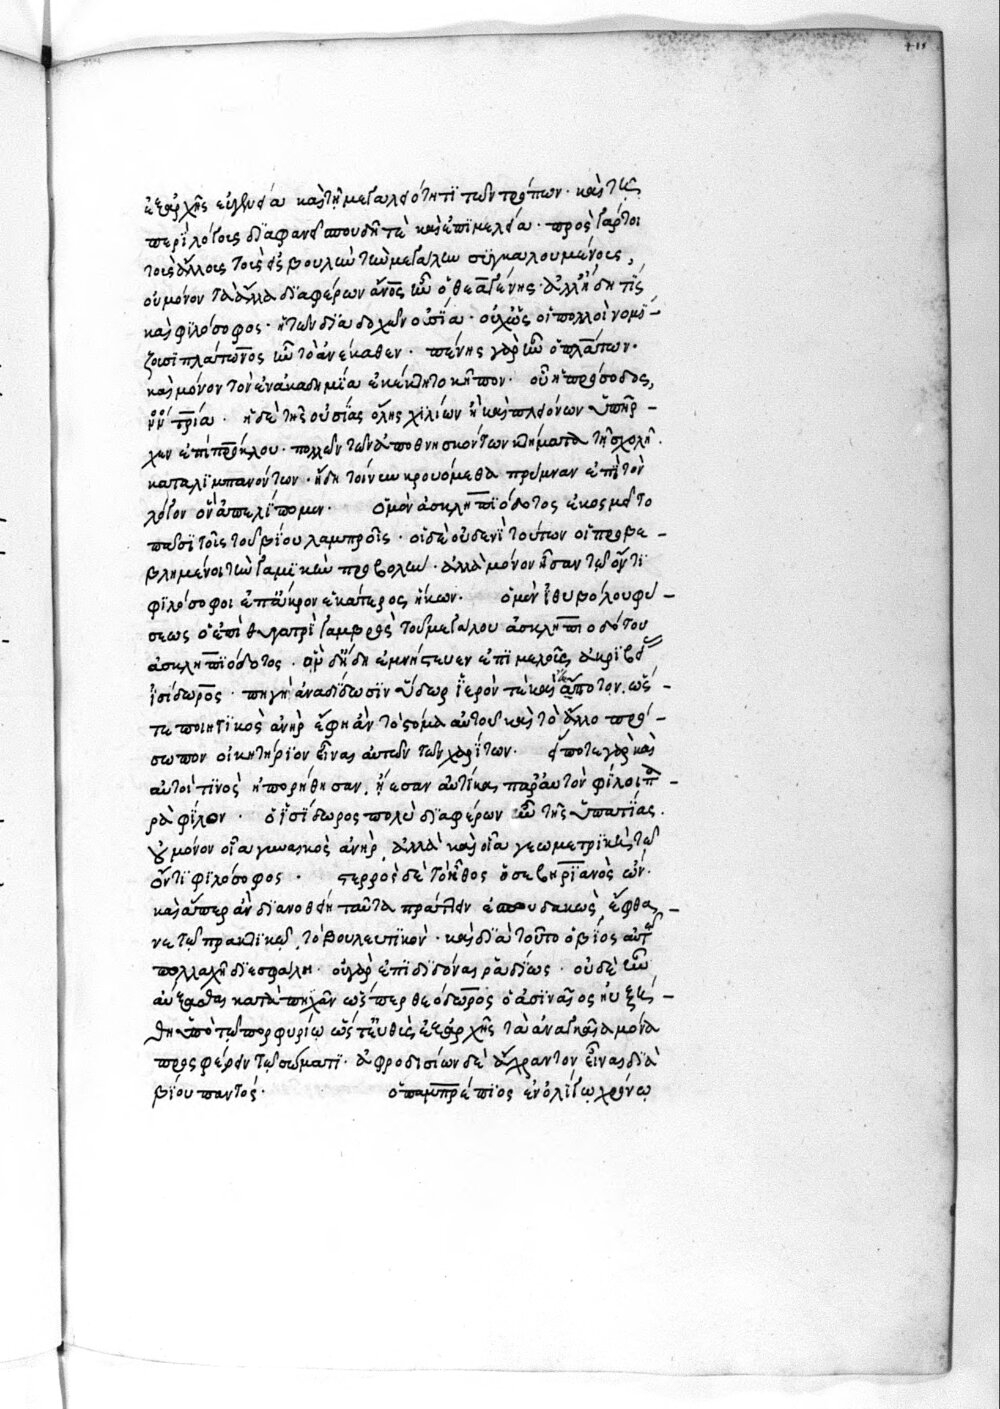 ἐξαρχῆς εὐγενεία καὶ τῇ μεγαλειότητι τῶν τρόπων· καὶ τῆς
περὶ λόγους διαφανεῖ σπουδῇ τε καὶ ἐπιμελεία· πρὸς γάρ τοι
τοῖς ἄλλοις τοῖς ἐς βουλὴν τὴν μεγάλην συγκαλουμένοις,
οὐ μόνον τὰ ἄλλα διαφέρων ἄνος ἦν ὁ θεαγένης· ἀλλ' ἤδη τίς
καὶ φιλόσοφος· ἡ τῶν διαδόχων οὐσία· οὐχ ὡς οἱ πολλοὶ νομί-
ζουσι πλάτωνος ἦν τὸ ἀνέκαθεν· πένης γὰρ ἦν ὁ πλάτων·
καὶ μόνον τὸν ἐν ἀκαδημία ἐκέκτητο κῆπον· οὗ ἡ πρόσοδος,
νν τρία· ἡ δὲ τῆς οὐσίας ὅλης χιλίων ἢ καὶ πλειόνων ὑπῆρ-
χεν ἐπὶ πρόκλου· πολλῶν τῶν ἀποθνησκόντων κτήματα τῇ σχολῇ
καταλιμπανόντων· ἤδη τοίνυν κρουόμεθα πρύμναν ἐπὶ τὸν
λόγον ὃν ἀπελίπομεν· ὁ μὲν ἀσκληπιόδοτος ἐκοσμεῖτο
πᾶσι τοῖς τοῦ βίου λαμπροῖς· οἱ δὲ οὐδενὶ τούτων οἱ προβε-
βλημένοι τῶν γαμικῶν προβολῶν· ἀλλὰ μόνον ἦσαν τῷ ὄντι
φιλόσοφοι ἐπ' ἄκρον ἑκάτερος ἥκων· ὁ μὲν ἰθυβόλου φύ-
σεως ὁ ἐπὶ θυγατρὶ γαμβρὸς τοῦ μεγάλου ἀσκληπιοδότου
ἀσκληπιόδοτος· ὁ δὲ ἤδη ἐμνήστευεν ἐπιμελοῦς ἀκριβείας
ἰσίδωρος· πηγὴ ἀναδίδωσιν ὕδωρ ἱερόν τε καὶ ἄποτον. ὥσ-
τε ποιητικὸς ἀνὴρ ἔφη ἂν τὸ στόμα αὐτοῦ καὶ τὸ ἄλλο πρό-
σωπον οἰκητήριον εἶναι αὐτῶν τῶν χαρίτων· εἴποτε γὰρ καὶ
αὐτοί τινὸς ἠπορήθησαν, ᾔεσαν αὐτίκα παρ' αὐτὸν φίλοι πα-
ρὰ φίλον· ὁ ἰσίδωρος πολὺ διαφέρων ἦν τῆς ὑπατίας.
οὐ μόνον οἷα γυναικὸς ἀνήρ, ἀλλὰ καὶ οἷα γεωμετρικῆς τῷ
ὄντι φιλόσοφος· στερρὸς δὲ τὸ ἦθος ὁ σεβηριανὸς ὤν·
καὶ ἅπερ ἂν διανοηθείη ταῦτα πράττειν ἐσπουδακὼς, ἔφθα-
νε τῷ πρακτικῷ, τὸ βουλευτικόν· καὶ διὰ τοῦτο ὁ βίος αὐτῷ
πολλαχῆ διεσφάλη· οὐ γὰρ ἐπιδιδόναι ῥαδίως· οὐδὲ ἦν
αὔξεσθαι κατὰ πῆχυν ὥσπερ θεόδωρος ὁ ἀσιναῖος ηὐξή-
θη ὑπὸ τῷ πορφυρίῳ ὥστ' εὐθὺς ἐξαρχῆς τὰ ἀναγκαῖα μόνα
προσφέρειν τῷ σώματι· ἀφροδισίων δὲ ἄχραντον εἶναι διὰ
βίου παντός· ὁ παμπρέπιος ἐν ὀλίγῳ χρόνῳ